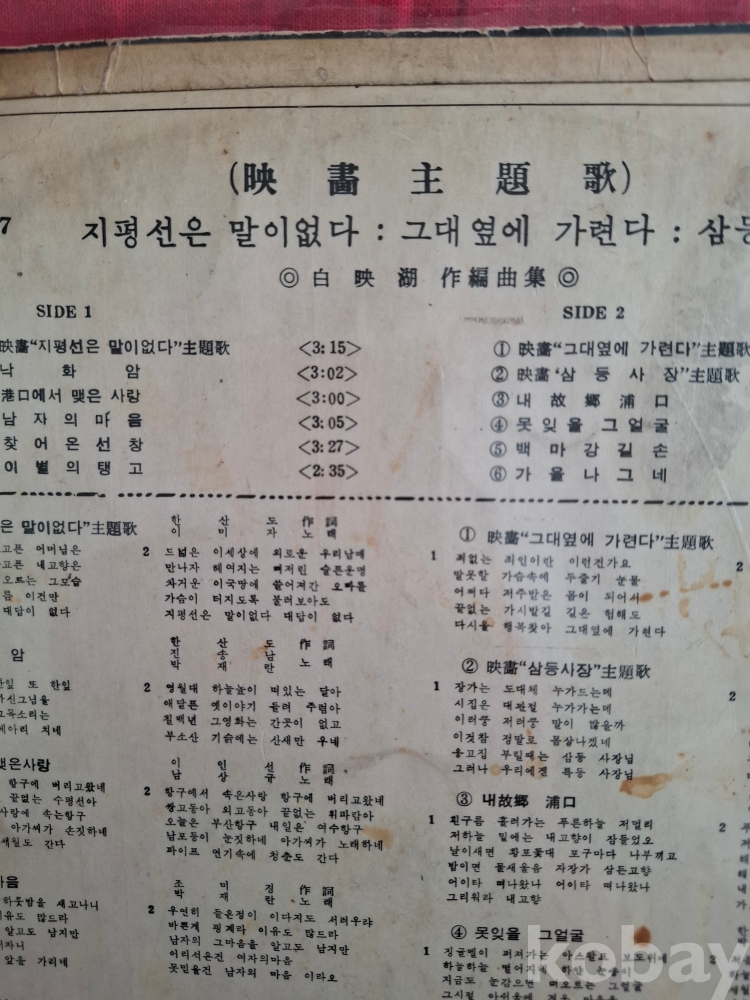 (映畵主題歌)
7 지평선은 말이없다 : 그대옆에 가련다 : 삼등
◎ 白映湖 作編曲集 ◎
SIDE 1
映畵"지평선은 말이없다"主題歌 <3:15>
낙화암 <3:02>
港口에서 맺은 사랑 <3:00>
남자의마음 <3:05>
찾어온선창 <3:27>
이별의탱고 <2:35>
SIDE 2
① 映畵"그대옆에 가련다"主題歌
② 映畵'삼등사장"主題歌
③ 내故鄕浦口
④ 못잊을 그얼굴
⑤ 백마강길손
⑥ 가을나그네
은 말이없다"主題歌
한산도 作詞
이미자 노래
고픈 어머님은
고픈 내고향은
오르는 그모습
름 이건만
대답이 없다
2 드넓은 이세상에 외로운 우리남매
만나자 헤여지는 뼈저린 슬픈운명
차거운 이국땅에 쓸어져간 오빠를
가슴이 터지도록 불러보아도
지평선은 말이없다 대답이 없다
암
한산도 作詞
진송남
박재란 노래
한잎 또 한잎
하신그님을
고목소리는
메아리 치네
2 영월대 하늘높이 떠있는 달아
애달픈 옛이야기 들려 주렴아
칠백년 그영화는 간곳이 없고
부소산 기슭에는 산새만 우네
맺은사랑
이인선 作詞
남상규 노래
항구에 버리고왔네
끝없는 수평선아
사랑에 속는항구
아가씨가 손짓하네
세월도 간다
2 항구에서 속은사랑 항구에 버리고왔네
쌍고동아 외고동아 끝없는 휘파람아
오늘은 부산항구 내일은 여수항구
남포등이 눈짓하네 아가씨가 노래하네
파이프 연기속에 청춘도 간다
마음
조미정 作詞
박재란 노래
하룻밤을 새고나니
이유도 많드라
알고도 남지만
여자니
앞을 가리네
2 우연히 들은정이 이다지도 서러우랴
바른게 핑계라 이유도 많드라
남자의 그마음을 알고도 남지만
어리석은건 여자의마음
못믿을건 남자의 마음 이라오
① 映畵"그대옆에 가련다"主題歌
1 죄없는 죄인이란 이런건가요
말못할 가슴속에 두줄기 눈물
어쩌다 저주받은 몸이 되어서
끝없는 가시밭길 길은 험해도
다시올 행복찾아 그대옆에 가련다
2
② 映畵"삼등사장"主題歌
1 장가는 도대체 누가드는데
시집은 대관절 누가가는데
이러쿵 저러쿵 말이 많을까
이것참 정말로 몸살나겠네
옹고집 부릴때는 삼등 사장님
그러나 우리에겐 특등 사장님
2
③ 내故鄕 浦口
1 흰구름 흘러가는 푸른하늘 저멀리
저하늘 밑에는 내고향이 잠들었오
날이새면 황포돛대 포구마다 나부끼고
밤이면 물새울음 자장가 삼든고향
어이타 떠나왔나 어이타 떠나왔나
그리워라 내고향
2
④ 못잊을 그얼굴
1 징글벨이 퍼져가는 아스팔트
하늘하늘 떨어지는 하얀
지금도 눈감으면 떠오르는 그얼굴
그시절
2
kobay